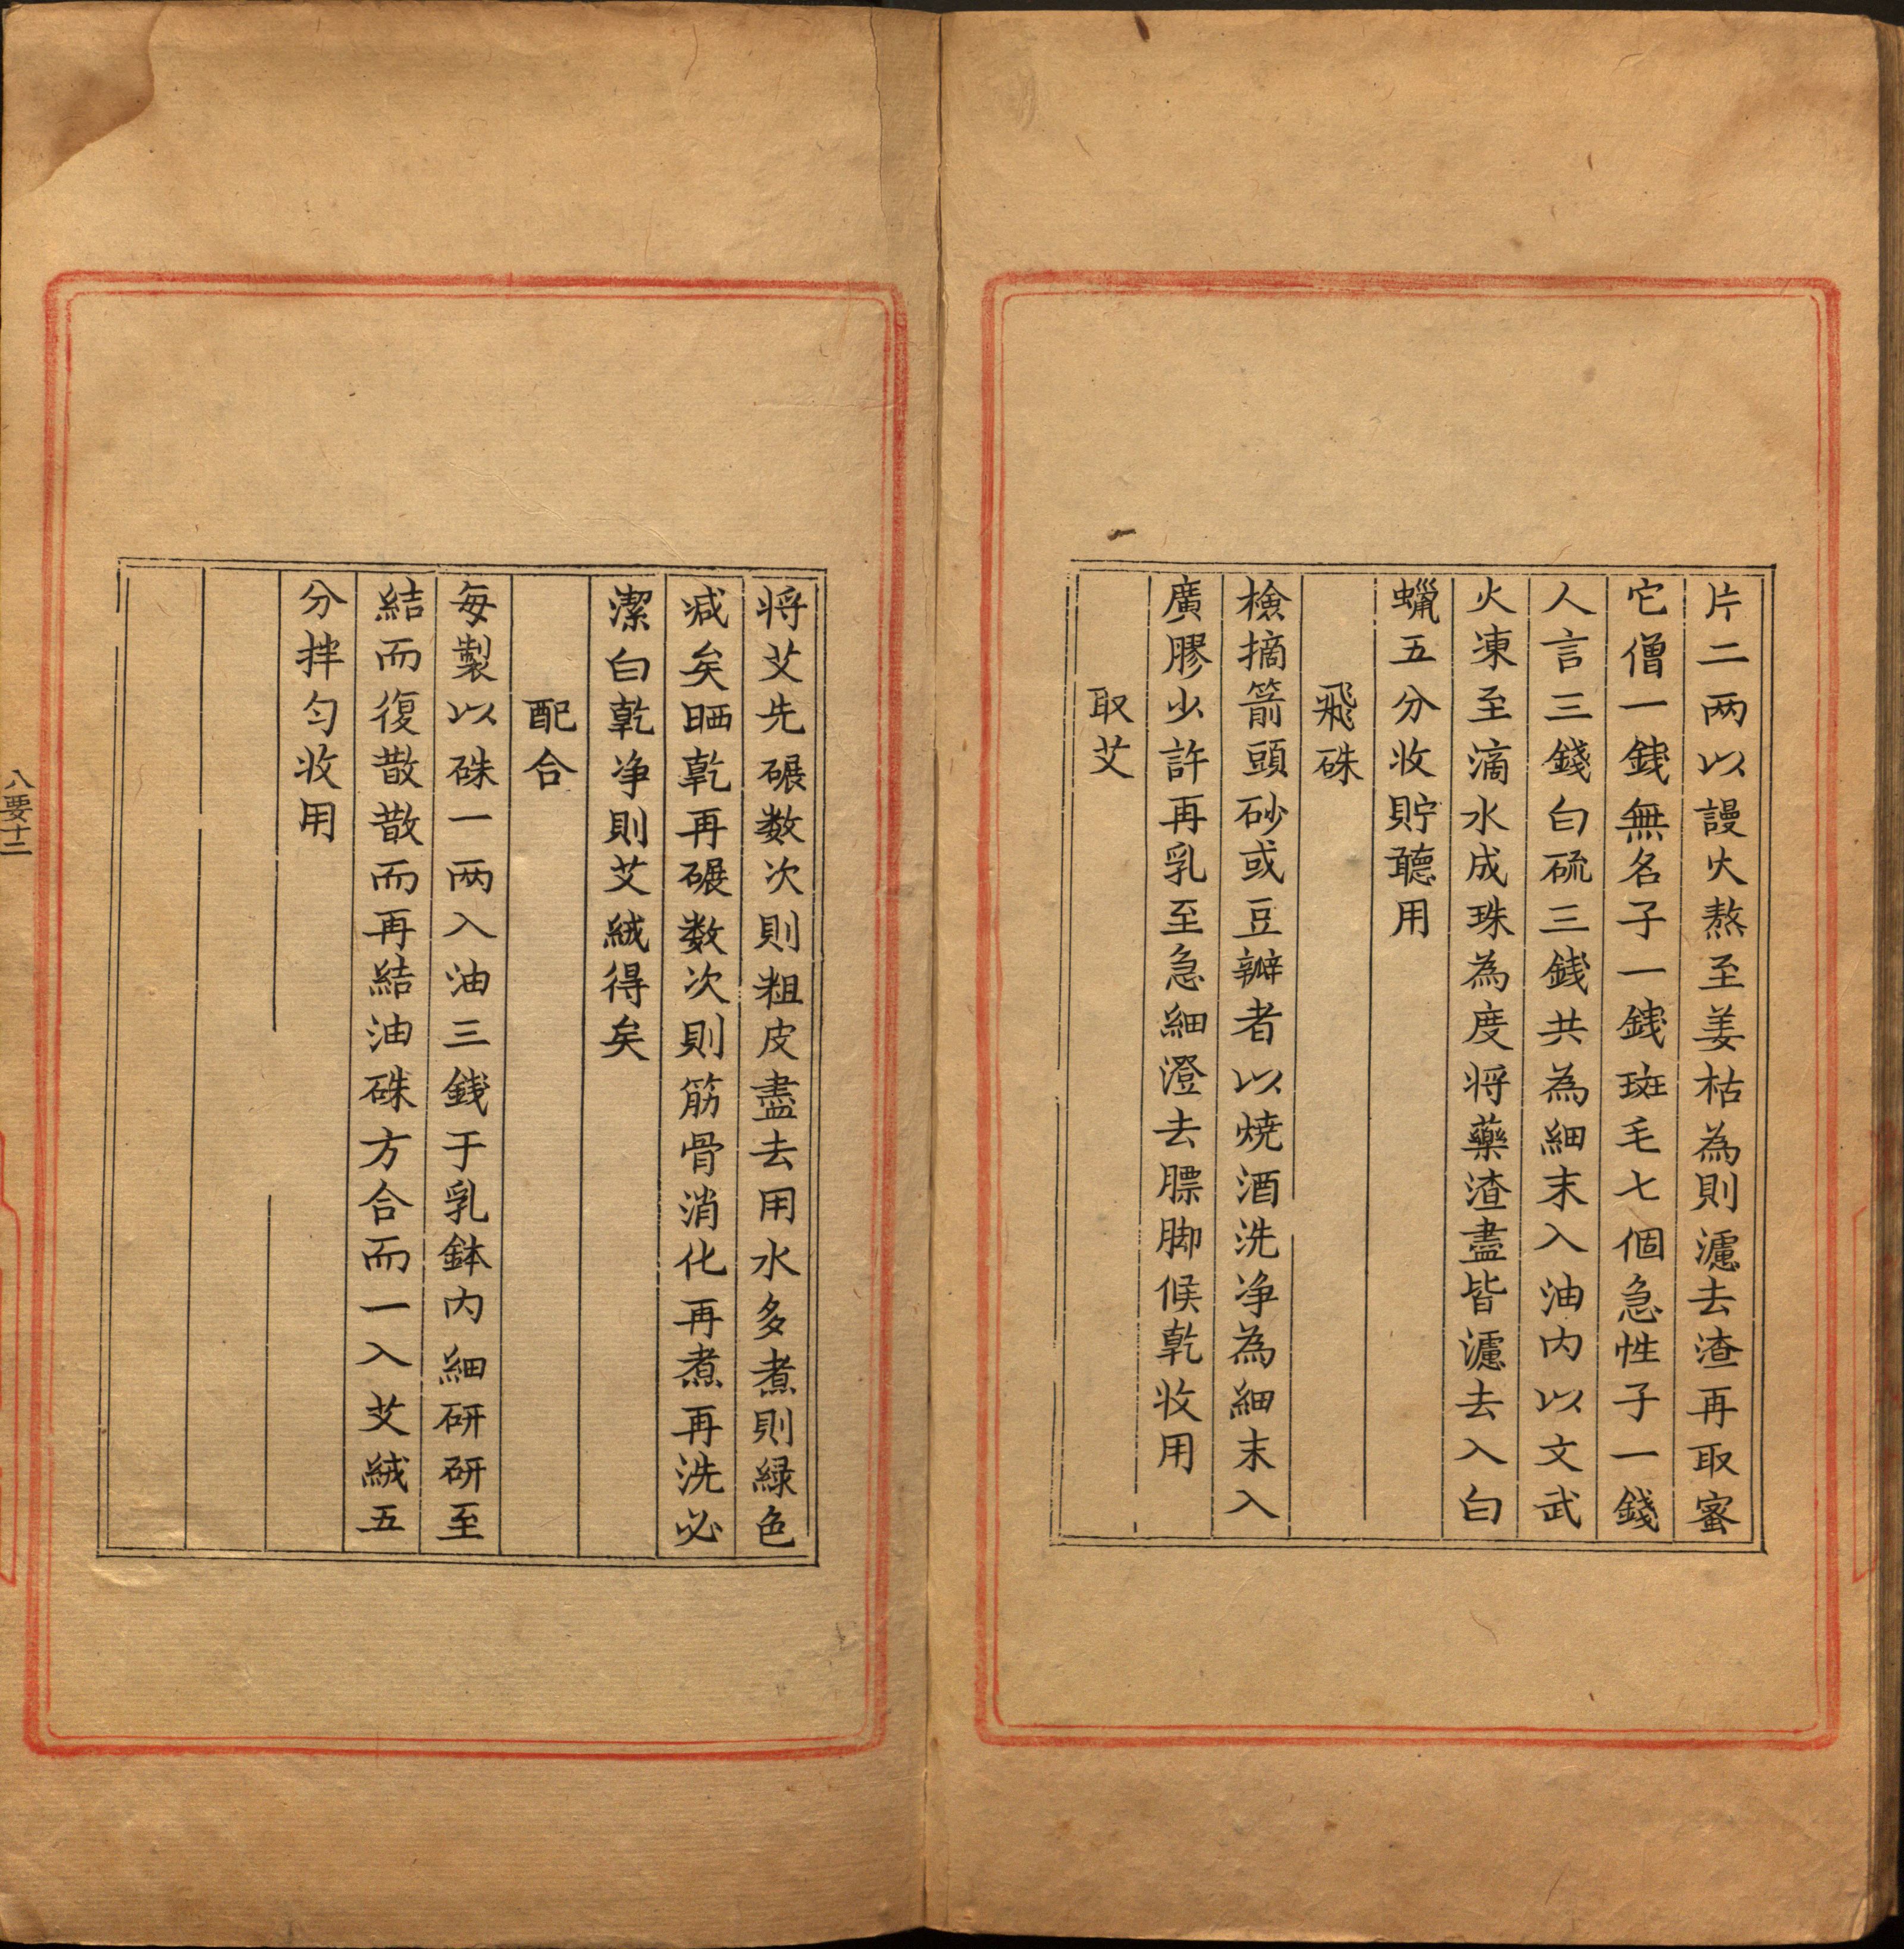 片二两以謾火熬至姜枯為則濾去渣再取蜜
它僧一錢無名子一錢斑毛七個急性子一錢
人言三錢白硫三錢共為細末入油内以文武
火凍至滴水成珠為度将藥渣盡皆濾去入白
蠟五分收貯聽用
飛硃
檢摘箭頭砂或豆瓣者以燒酒洗净為細末入
廣膠少許再乳至急細澄去膘脚候乾收用
取艾
将艾先碾数次則粗皮盡去用水多煮則緑色
减矣晒乾再碾数次則筋骨消化再煮再洗必
潔白乾净則艾絨得矣
配合
每製以硃一两入油三錢于乳鉢内細研研至
結而復散散而再結油硃方合而一入艾絨五
分拌匀收用
八要十二